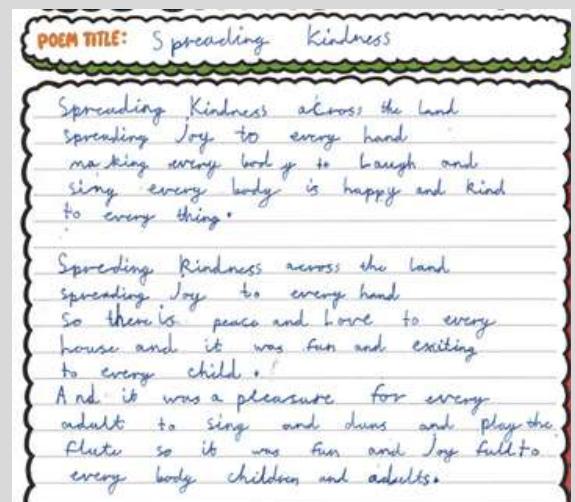 POEM TITLE: Spreading Kindness
Spreading Kindness across the land
spreading Joy to every hand
making every body to Laugh and
sing every body is happy and kind
to every thing.
Spreding Kindness across the land
spreading Joy to every hand
So there is peace and Love to every
house and it was fun and exiting
to every child.
And it was a pleasure for every
adult to sing and duns and play the
flute so it was fun and Joy full to
every body children and adults.